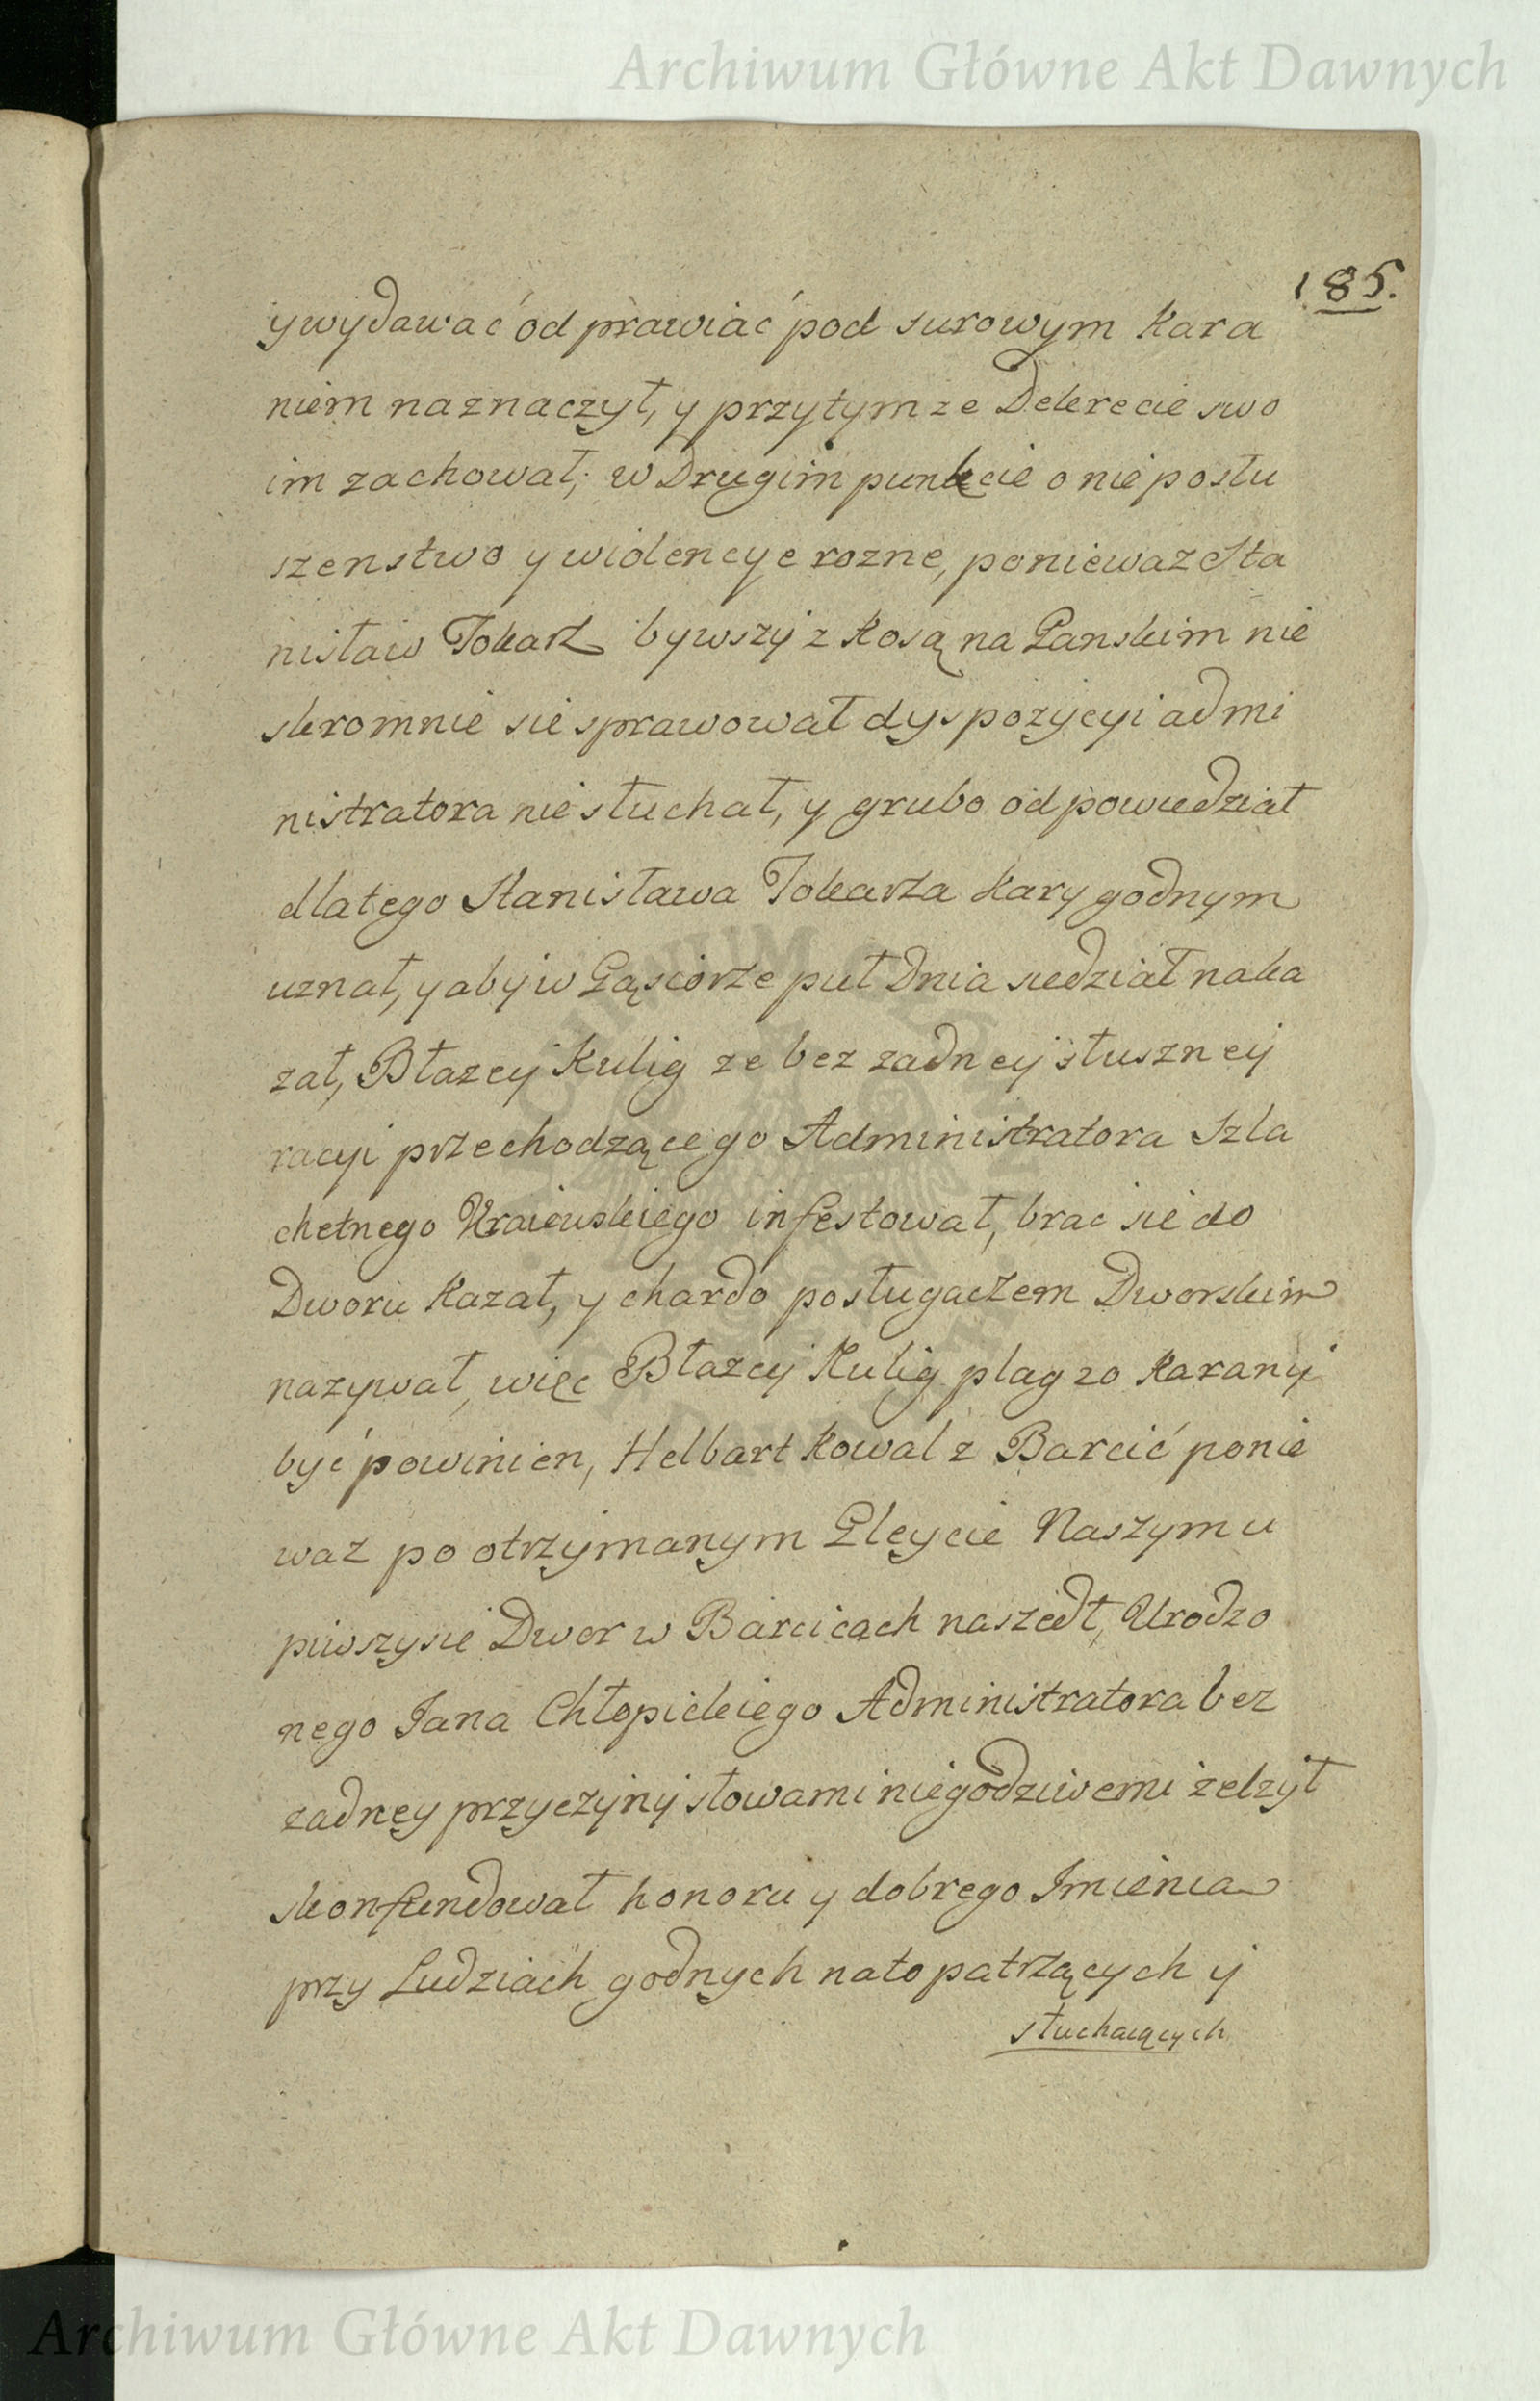 Archiwum Główne Akt Dawnych
185.
y wydawać odprawiać pod surowym kara
niem naznaczył, y przytym ze Dekrecie swo
im zachował; w Drugim punkcie o nieposłu
szenstwo y widencye rozne, poniewaz Sta
nisław Tokarz bywszy z kosą na Panskim nie
skromnie sie sprawował dyspozycyi admi
nistratora nie słuchał, y grubo odpowiedział
dlatego Stanisława Tokarza kary godnym
uznał, y aby w Gąsiorze puł Dnia siedział naka
zał, Błazey Kulig ze bez zadney słuszney
racyi przechodzącego Administratora Szla
chetnego Kraiewskiego infestował, brac sie do
Dworu kazał, y chardo posługaczem Dworskim
nazywał, więc Błazey Kulig plag 20 karany
być powinien, Helbart kowal z Barcić ponie
waz po otrzymanym Gleycie Naszym u
piwszy sie Dwor w Barcicach naszedł, Urodzo
nego Jana Chłopickiego Administratora bez
zadney przyczyny słowami niegodziwemi zelzył
skonfundował honoru y dobrego Imienia
przy Ludziach godnych na to patrzących y
słuchaiących
Archiwum Główne Akt Dawnych